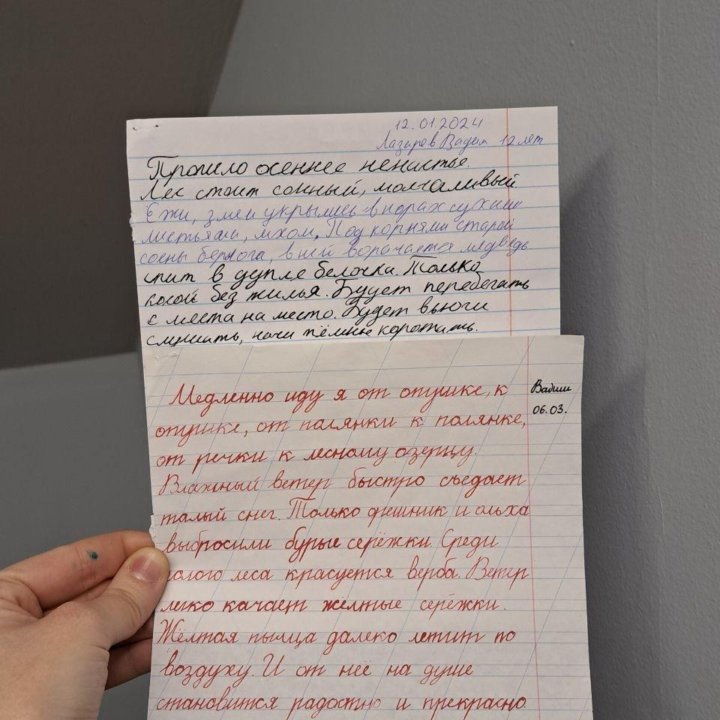 12.01.2024
Лазарев Вадим 12 лет
Прошло осеннее ненастье
Лес стоит сонный, молчаливый
Ежи, змеи укрылись в норах сухими
листьями, мхом. Под корнями старой
сосны берлога, в ней ворочается медведь
спит в дупле белочка. Только
косой без жилья. Будет перебегать
с места на место. Будет вьюги
слушать, ночи тёмные коротать.
Медленно иду я от опушке, к
опушке, от палянки к полянке,
от речки к лесному озерцу.
Влажный ветер быстро съедает
талый снег. Только орешник и ольха
выбросили бурые серёжки. Среди
голого леса красуется верба. Ветер
легко качает желтые серёжки.
Жёлтая пыльца далеко летит по
воздуху. И от неё на душе
становится радостно и прекрасно
Вадим
06.03.